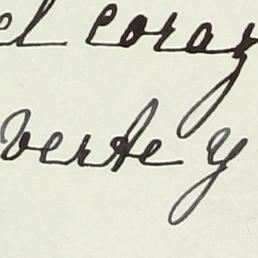 el coraz
verte y